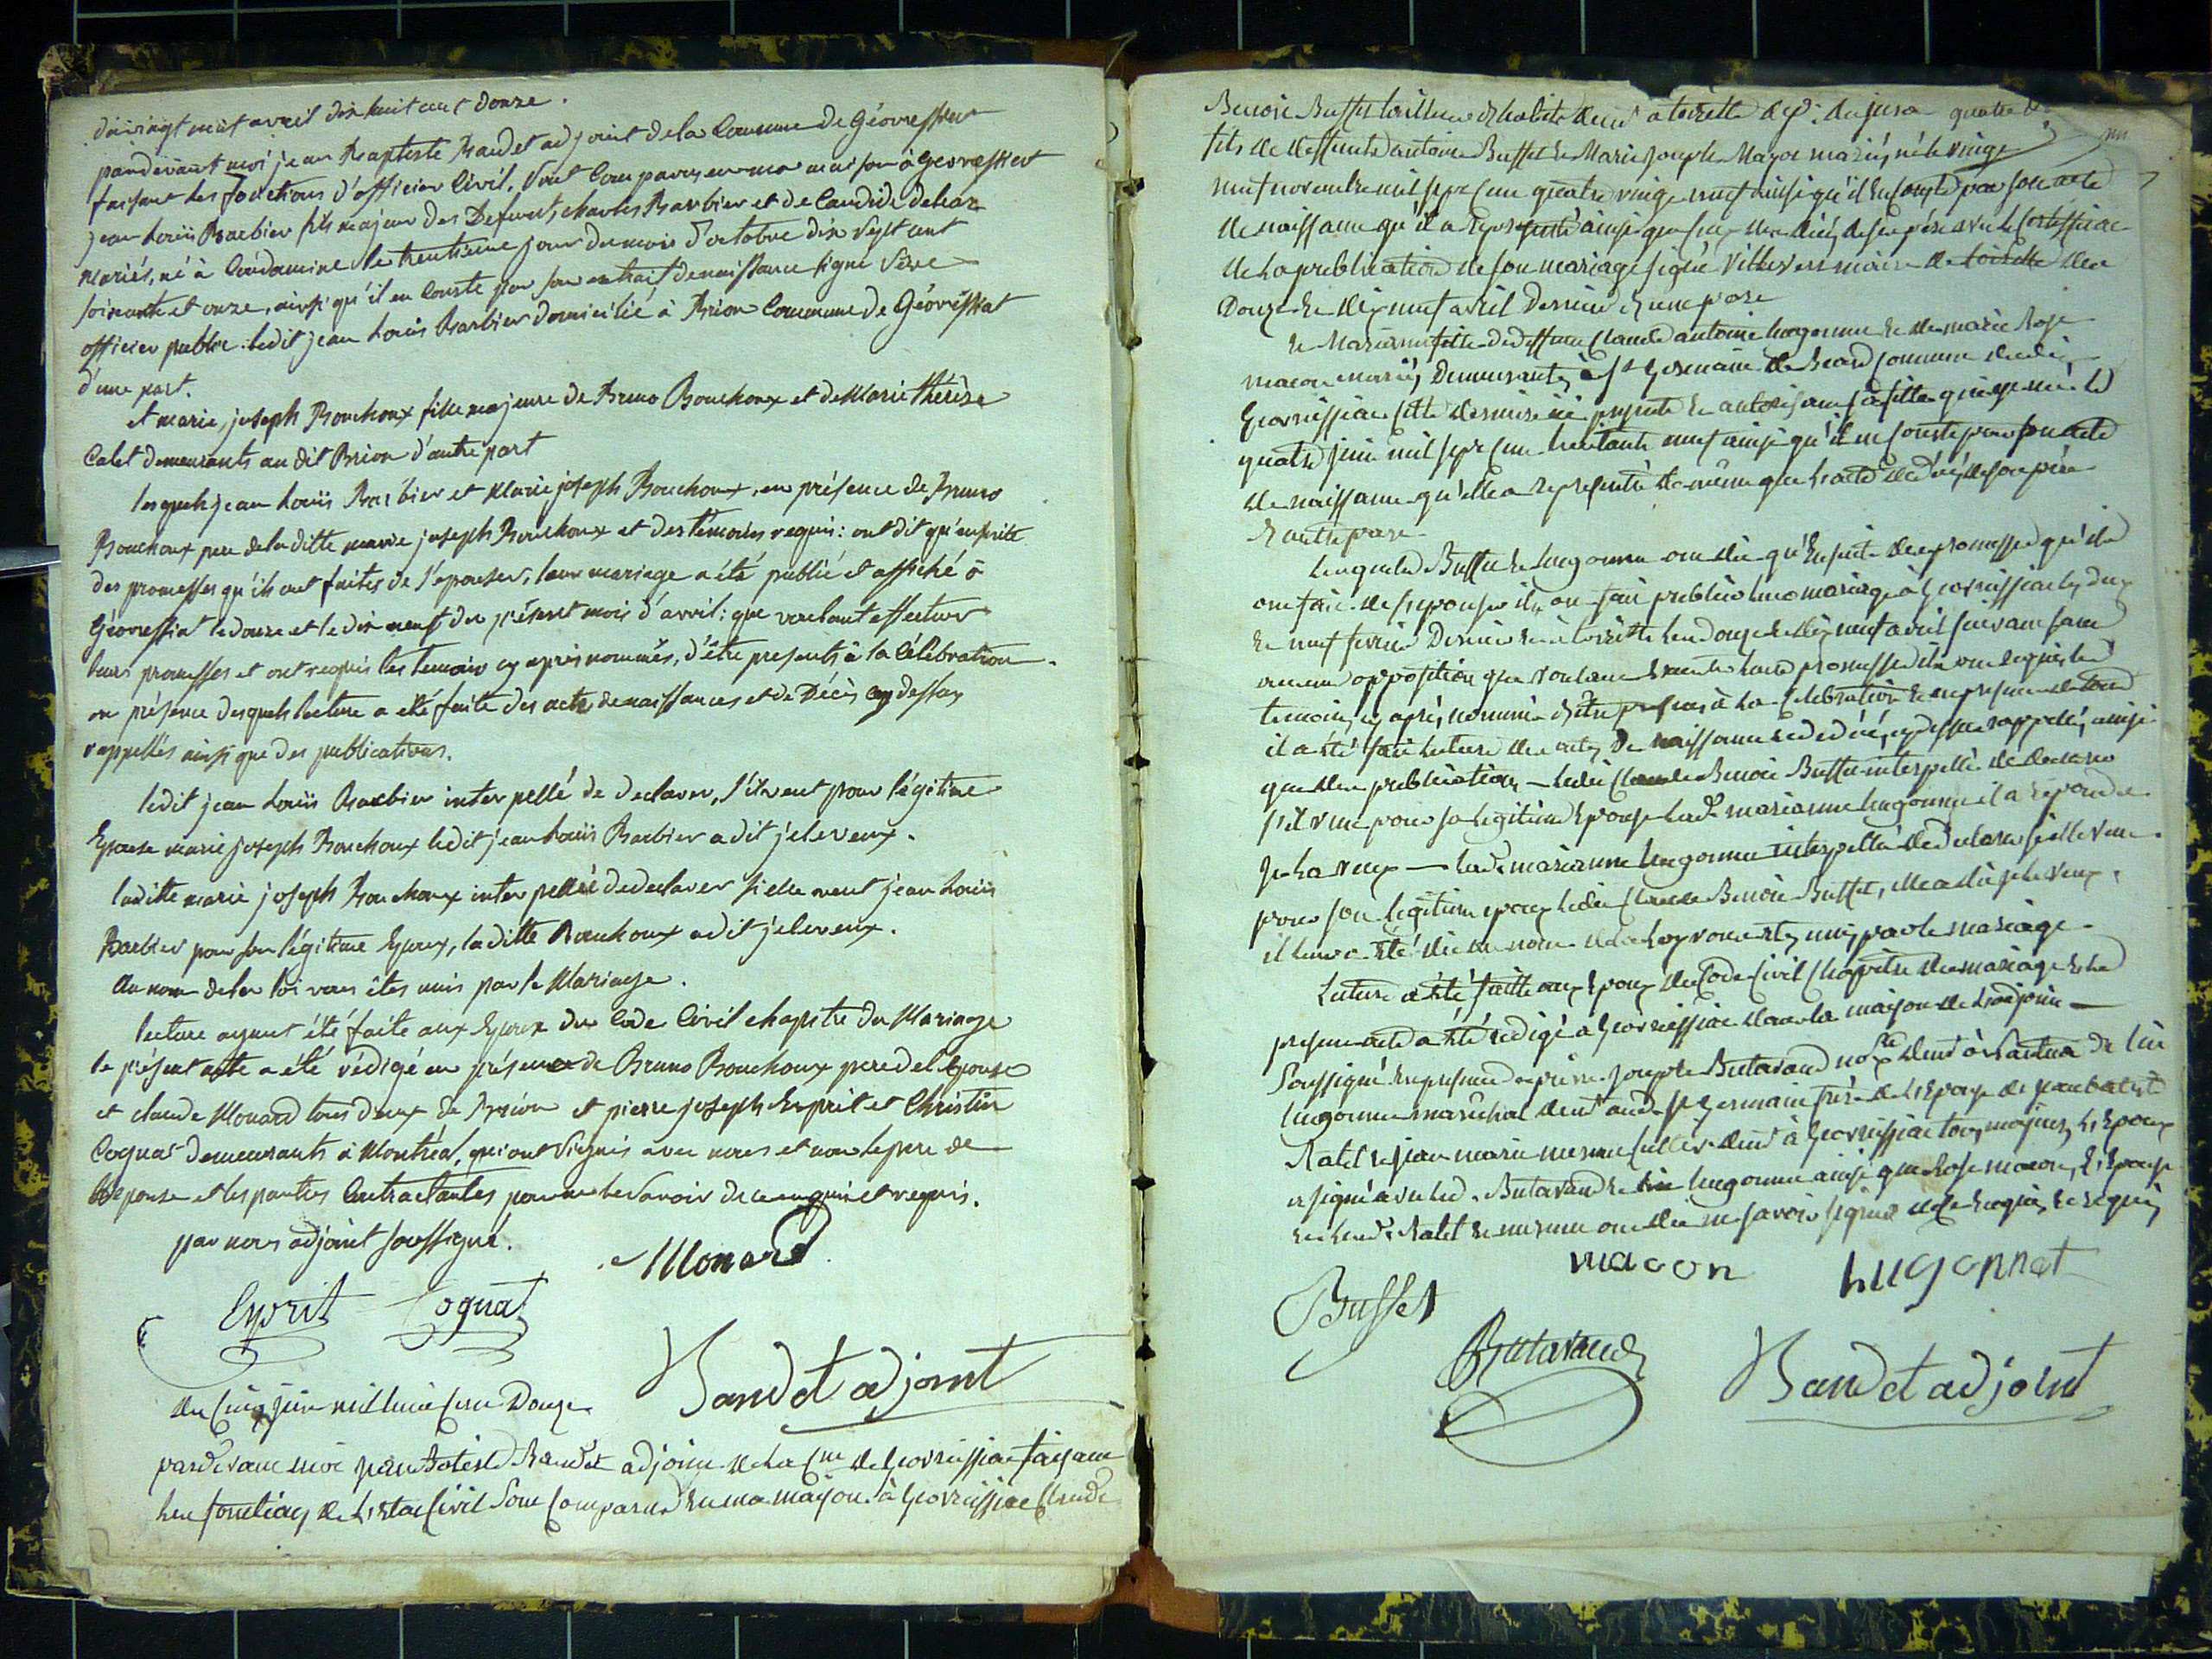 du vingt neuf avril dix huit cent Douze.
pardevant moi jean Baptiste Baudet adjoint de la Commune de Géovressiat
faisant les fonctions d'officier Civil, sont Comparus en ma maison à géovressiat
jean Louis Barbier fils majeur des Defunts charles Barbier et de Candide
mariés, né à Condamine le trentieme jour du mois d'octobre dix sept cent
soixante et onze, ainsi qu'il en Conste par son extrait de naissance signé
officier public. ledit jean Louis Barbier domicilié à Brion Commune de Géovressiat
d'une part.
et marie joseph Bouchoux fille majeure de Bruno Bouchoux et de Marie thérèse
Calet demeurants au dit Brion d'autre part
lesquels jean Louis Barbier et Marie joseph Bouchoux, en présence de Bruno
Bouchoux pere de laditte marie joseph Bouchoux et des temoins requis: ont dit qu'ensuite
des promesses qu'ils ont faites de s'épouser, leur mariage a été publié et affiché à
Géovressiat le douze et le dix neuf du présent mois d'avril: que voulant effectuer
leurs promesses et ont requis les temoins cy après nommés, d'être presents à la Célébration.
en présence desquels lecture a été faite des actes de naissances et de Décès cy dessus
rappellés ainsi que des publications.
ledit jean Louis Barbier interpellé de declarer, s'il veut pour légitime
Epouse marie joseph Bouchoux ledit jean Louis Barbier a dit je le veux.
laditte marie joseph Bouchoux interpellée de declarer si elle veut jean Louis
Barbier pour son légitime Epoux, laditte Bouchoux a dit je le veux.
Au nom de la loi vous êtes unis par le Mariage.
lecture ayant été faite aux Epoux du Code Civil chapitre du Mariage
le présent acte a été rédigé en présence de Bruno Bouchoux pere de l'Epouse
et claude Monard tous deux de Brion et pierre joseph Esprit et Christin
Cognat demeurants à Montréal, qui ont signés avec nous et non le pere de
l'Epouse et les parties Contractantes pour ne le savoir de ce enquis et requis.
par nous adjoint soussigné.
Monard
Esprit Cognat
Baudet adjoint
du Cinq juin mil huit Cent Douze
pardevant moi jean Batiste Baudet adjoint de la Cne de Geovressiat faisant
les fonctions de l'Etat Civil sont Comparus en ma maison à Geovressiat Claude
Benoit Buffet tailleur d'habits demt a toirette dept. du jura
fils de deffunts antoine Buffet et Marie Joseph Mayor mariés, né le vingt
neuf novembre mil sept Cent quatre vingt neuf ainsi qu'il en Conste par son acte
de naissance qu'il a représenté ainsi que celui de décés de son père avec le Certifficat
de la publication de son mariage signé maire de toirette des
Douze et dix neuf avril Dernier d'une part
Et Marianne fille de deffunt Claude antoine hugonnet et de marie Rose
macon mariés Demeurants à St germain de Beard Commune dudit
Geovressiat cette derniere ici presente et autorisant sa fille qui est née le
quatre juin mil sept Cent huitante neuf ainsi qu'il en Conste par son acte
de naissance qu'elle a représenté de même que l'acte de décés de son père
d'autre part
Lesquels Buffet et hugonnet ont dit qu'Ensuite des promesses qu'ils
ont fait de s'epouser ils ont fait publier leur mariage à Geovressiat les deux
et neuf fevrier Dernier et à toirette les douze et dix neuf avril suivant sans
aucune opposition que voulant Executer leurs promesses ils ont requis les
temoins cy après nommés d'être presens à la Celebration en presence de tous
il a été fait lecture des actes de naissance et de décés, cy dessus rappellés, ainsi
que des publications — ledit Claude Benoit Buffet interpellé de declarer
s'il veut pour sa legitime Epouse lade marianne hugonnet il a repondu
je la veux — lade marianne hugonnet interpellée de declarer si elle veut
pour son legitime epoux ledit Claude Benoit Buffet, elle a dit je le veux.
il leur a été dit au nom de la loy vous etes unis par le mariage.
Lecture a été faitte aux Epoux du Code Civil Chapitre du mariage et le
present acte a été redigé a Geovressiat dans la maison de l'adjoint —
Soussigné En presence de pierre Joseph Butavand demt à Nantua de
hugonnet maréchal demt aud. St germain frère de l'Epouse de jean batiste
Ratel et jean marie demt à Geovressiat tous majeurs, l'Epoux
a signé avec led. Butavand et hugonnet ainsi que Rose macon, L'Epouse
et lesd. Ratel et ont dit ne savoir signer de ce Enquis et requis
macon hugonnet
Buffet
Butavand
Baudet adjoint